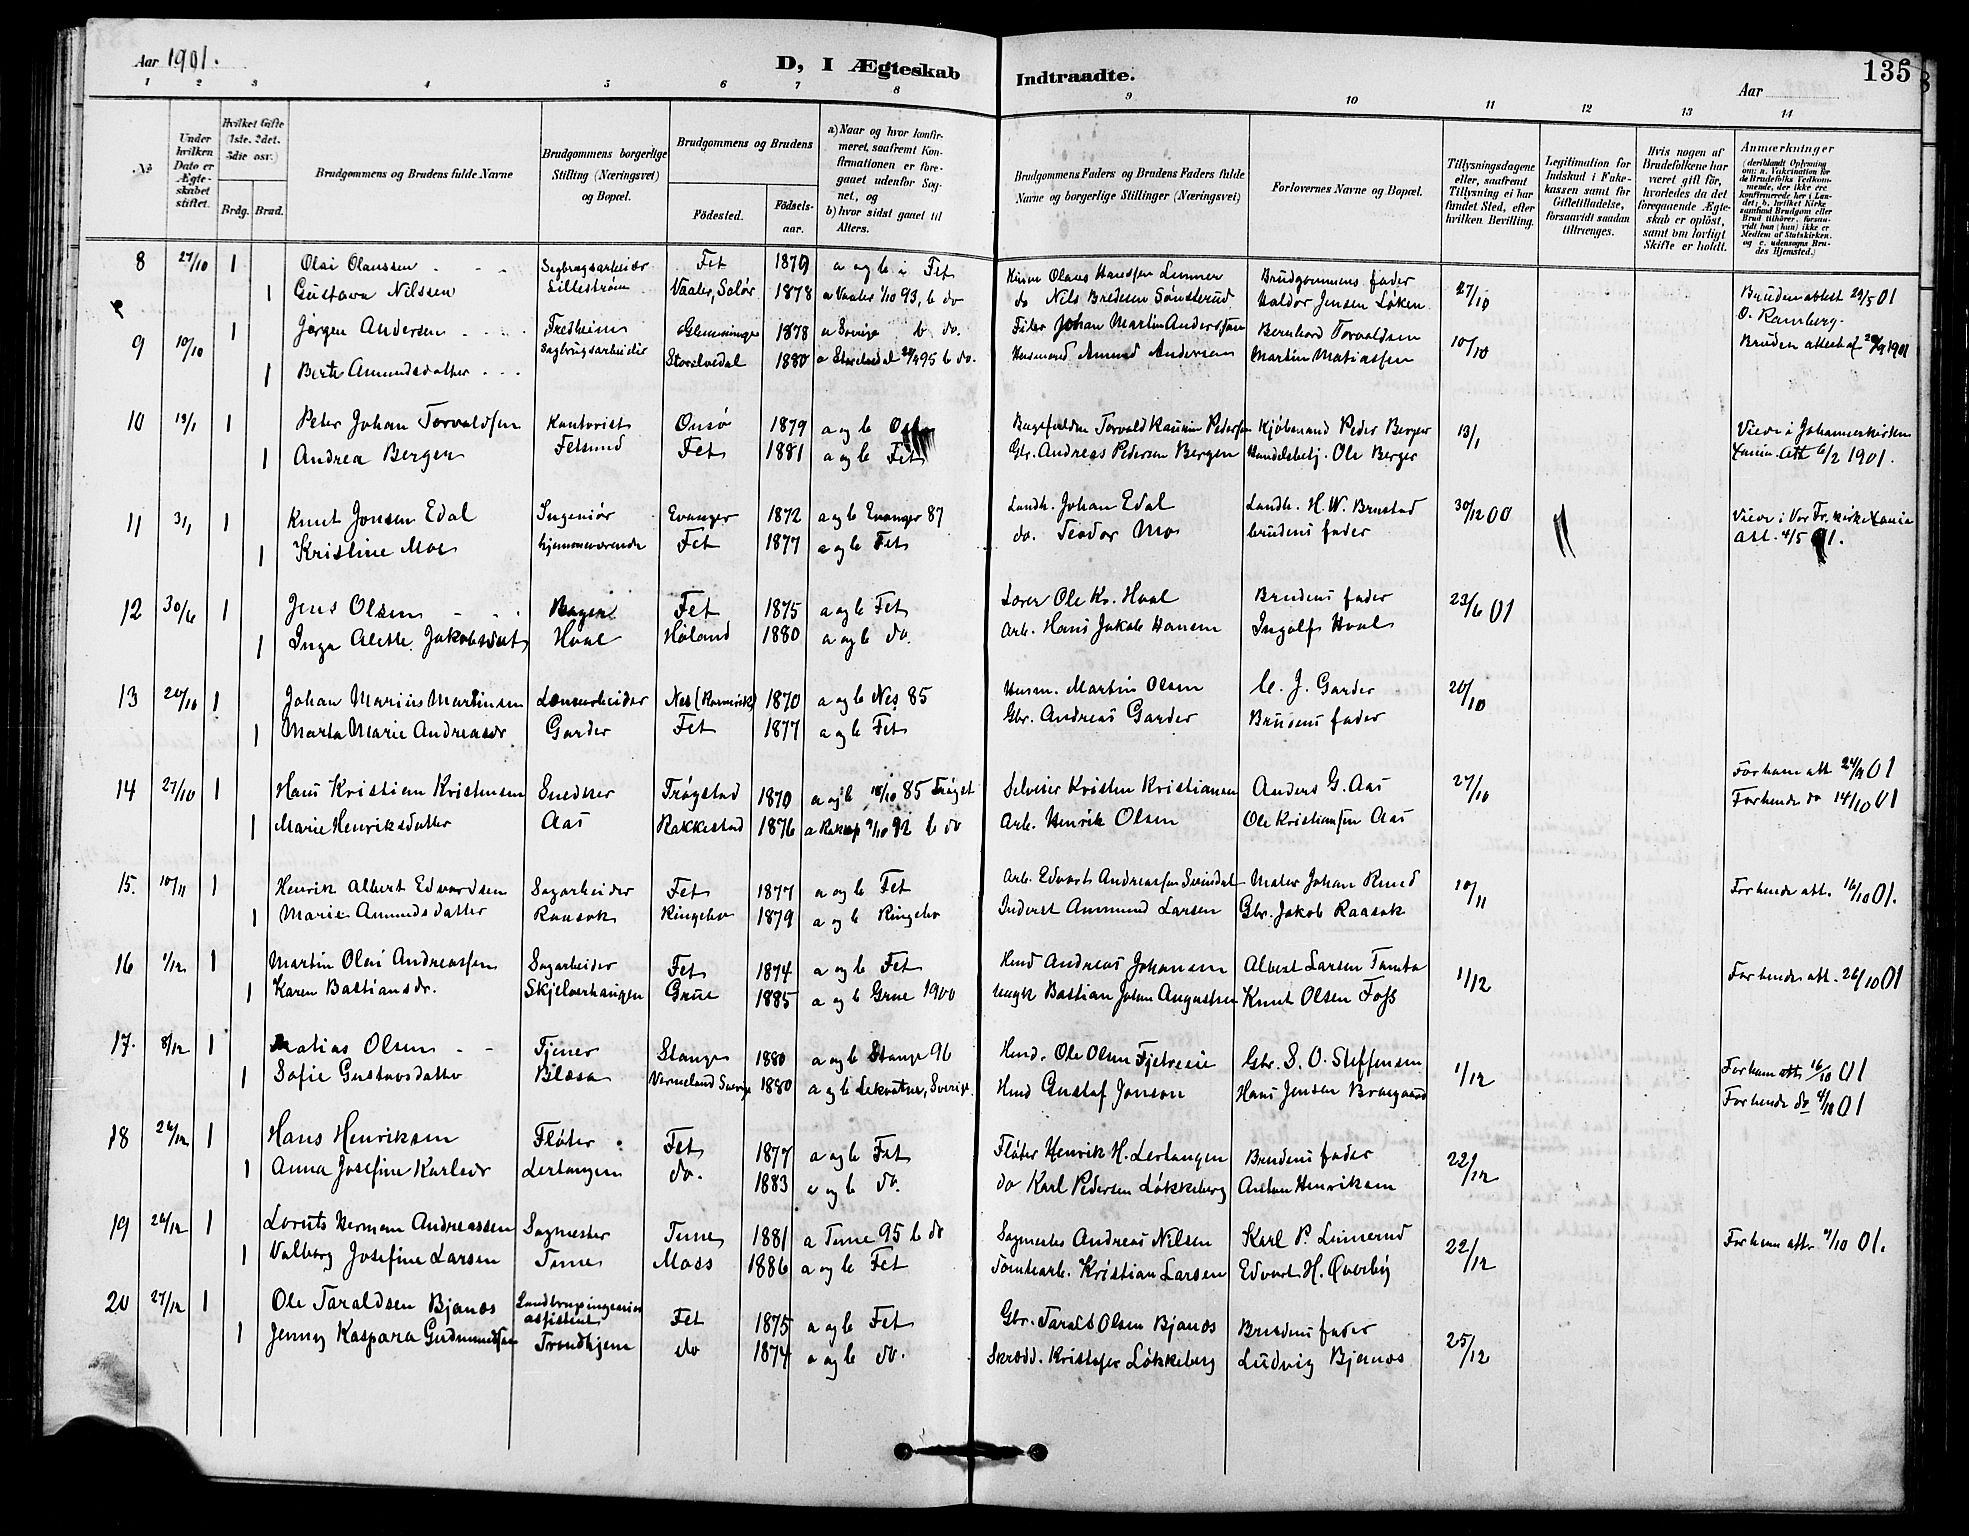 Aar 1901.
D, I Ægteskab Indtraadte.
135
Aar
1 2 3 4 5 6 7 8 9 10 11 12 13 14
No
Under hvilken Dato er Ægteskabet stiftet.
Hvilket Gifte (1ste, 2det, 3die osv.)
Brdg. Brud.
Brudgommens og Brudens fulde Navne
Brudgommens borgerlige Stilling (Næringsvei) og Bopæl.
Brudgommens og Brudens
Födested.
Födselsaar.
a) Naar og hvor konfirmeret, saafremt Konfirmationen er foregaaet udenfor Sognet, og b) hvor sidst gaaet til Alters.
Brudgommens Faders og Brudens Faders fulde Navne og borgerlige Stillinger (Næringsvei)
Forlovernes Navne og Bopæl.
Tillysningsdagene eller, saafremt Tillysning ei har fundet Sted, efter hvilken Bevilling.
Legitimation for Indskud i Enkekassen samt for Giftetilladelse, forsaavidt saadan tiltrænges.
Hvis nogen af Brudefolkene har været gift för, hvorledes da det foregaaende Ægteskab er oplöst, samt om lovligt Skifte er holdt.
Anmærkninger
8 27/10 1 Olai Olaussen Sagbrugsarbeider Fet 1879 a og b i Fet Olaus Hanssen Brudgommens fader 27/10
1 Gustava Nilssen Lilleström Vaaler, Solör 1878 a Vaaler 1/10 93, b do do Nils Bredesen Sönsterud Haldor Jensen Löken Bruden attest 29/5 01
O. Ramberg.
9 10/10 1 Jörgen Andersen Fredheim 1878 a Sverige b do. Johan Martin Anderssen Bernhard Torvaldsen 10/10
Sagbrugsarbeider
1 Berte Amundsdatter Storelvedal 1880 a Storelvedal 95 b do. Husmand Amund Andersen Martin Matiassen Bruden attest af 1901
10 13/1 1 Peter Johan Torvaldsen Kontorist Onsö 1879 a og b Torvald Pedersen Kjöbmand Peder Berger 13/1 Viede i Johanneskirken
1 Andrea Bergen Fetsund Fet 1881 a og b Fet Gbr. Andreas Pedersen Bergen Handelsbetj. Ole Berger Xania Att 6/2 1901.
11 3/1 1 Knut Jonsen Edal Ingeniör Evanger 1872 a og b Evanger 87 Landh. Johan Edal Landh. H. W. Brustad 30/12 00 Viede i Vor Fr. kirke Xania
1 Kristine Moe hjemmeværende Fet 1877 a og b Fet do. Teodor Mo brudens fader Att. 4/5 01.
12 30/6 1 Jens Olsen Bager Fet 1875 a og b Fet Lærer Ole Kr. Hval Brudens fader 23/6 01
1 Inga Alette Jakobsdat Hval Höland 1880 a og b do. Arb. Hans Jakob Hansen Ingolf Hval
13 20/10 1 Johan Marius Martinsen Lensearbeider Nes 1870 a og b Nes 85 Husm. Martin Olsen M. J. Garder 20/10
1 Marta Marie Andreasdr Garder Fet 1877 a og b Fet Gbr. Andreas Garder Brudens fader
14 27/10 1 Hans Kristian Kristensen Snedker Trögstad 1870 a og b 18/10 85 Trögst Selveier Kristen Kristiansen Anders G. Aas 27/10 For ham att 24/9 01
1 Marie Henriksdatter Aas Rakkestad 1876 a Rakkest 9/10 92 b do Arb. Henrik Olsen Ole Kristiansen Aas For hende do 14/10 01
15. 10/11 1 Henrik Albert Edvardsen Sagarbeider Fet 1877 a og b Fet Arb. Edvart Andreassen Svindal Maler Johan Rund 10/11 For hende att. 16/10 01.
1 Marie Amundsdatter Raasok Ringebo 1879 a og b Ringebo Inderst Ammund Larsen Gbr. Jakob Raasok
16 1/12 1 Martin Olai Andreassen Sagarbeider Fet 1874 a og b Fet Hmd Andreas Johansen Albert Larsen Tomta 1/12 For hende att. 26/10 01
1 Karen Bastiansdr. Skjelverhaugen Grue 1885 a og b Grue 1900 Bastian Johan Augustsen Knut Olsen Foss
17. 8/12 1 Matias Olsen Tjener Stange 1880 a og b Stange 96 Hmd. Ole Olsen Gbr. S. O. Steffensen 1/12 For ham att 16/10 01
1 Sofie Gustavsdatter Blæsa Vermeland Sverige 1880 a og b Sverige. Hmd Gustaf Jonson Hans Jensen Braagaard For hende do 4/10 01
18 26/12 1 Hans Henriksen Flöter Fet 1877 a og b Fet Flöter Henrik H. Lertangen Brudens fader 22/12
1 Anna Josefine Karlsdr Lertangen do. 1883 a og b do. do Karl Pedersen Lökkeberg Anton Henriksen
19 26/12 1 Lorents Herman Andreassen Sagmester Tune 1881 a Tune 95 b do Sagmester Andreas Nilsen Karl P. Linnerud 22/12 For ham att. 7/10 01.
1 Valborg Josefine Larsen Tune Moss 1886 a og b Fet Tomtearb. Kristian Larsen Edvart H. Överby
20 27/12 1 Ole Taraldsen Bjanes Landbrugsingeniör assistent Fet 1875 a og b Fet Gbr. Tarald Olsen Bjanes Brudens fader 25/12
1 Jenny Kaspara Gudmundsen Trondhjem do 1874 a og b do. Skrædd. Kristofer Lökkeberg Ludvig Bjanes